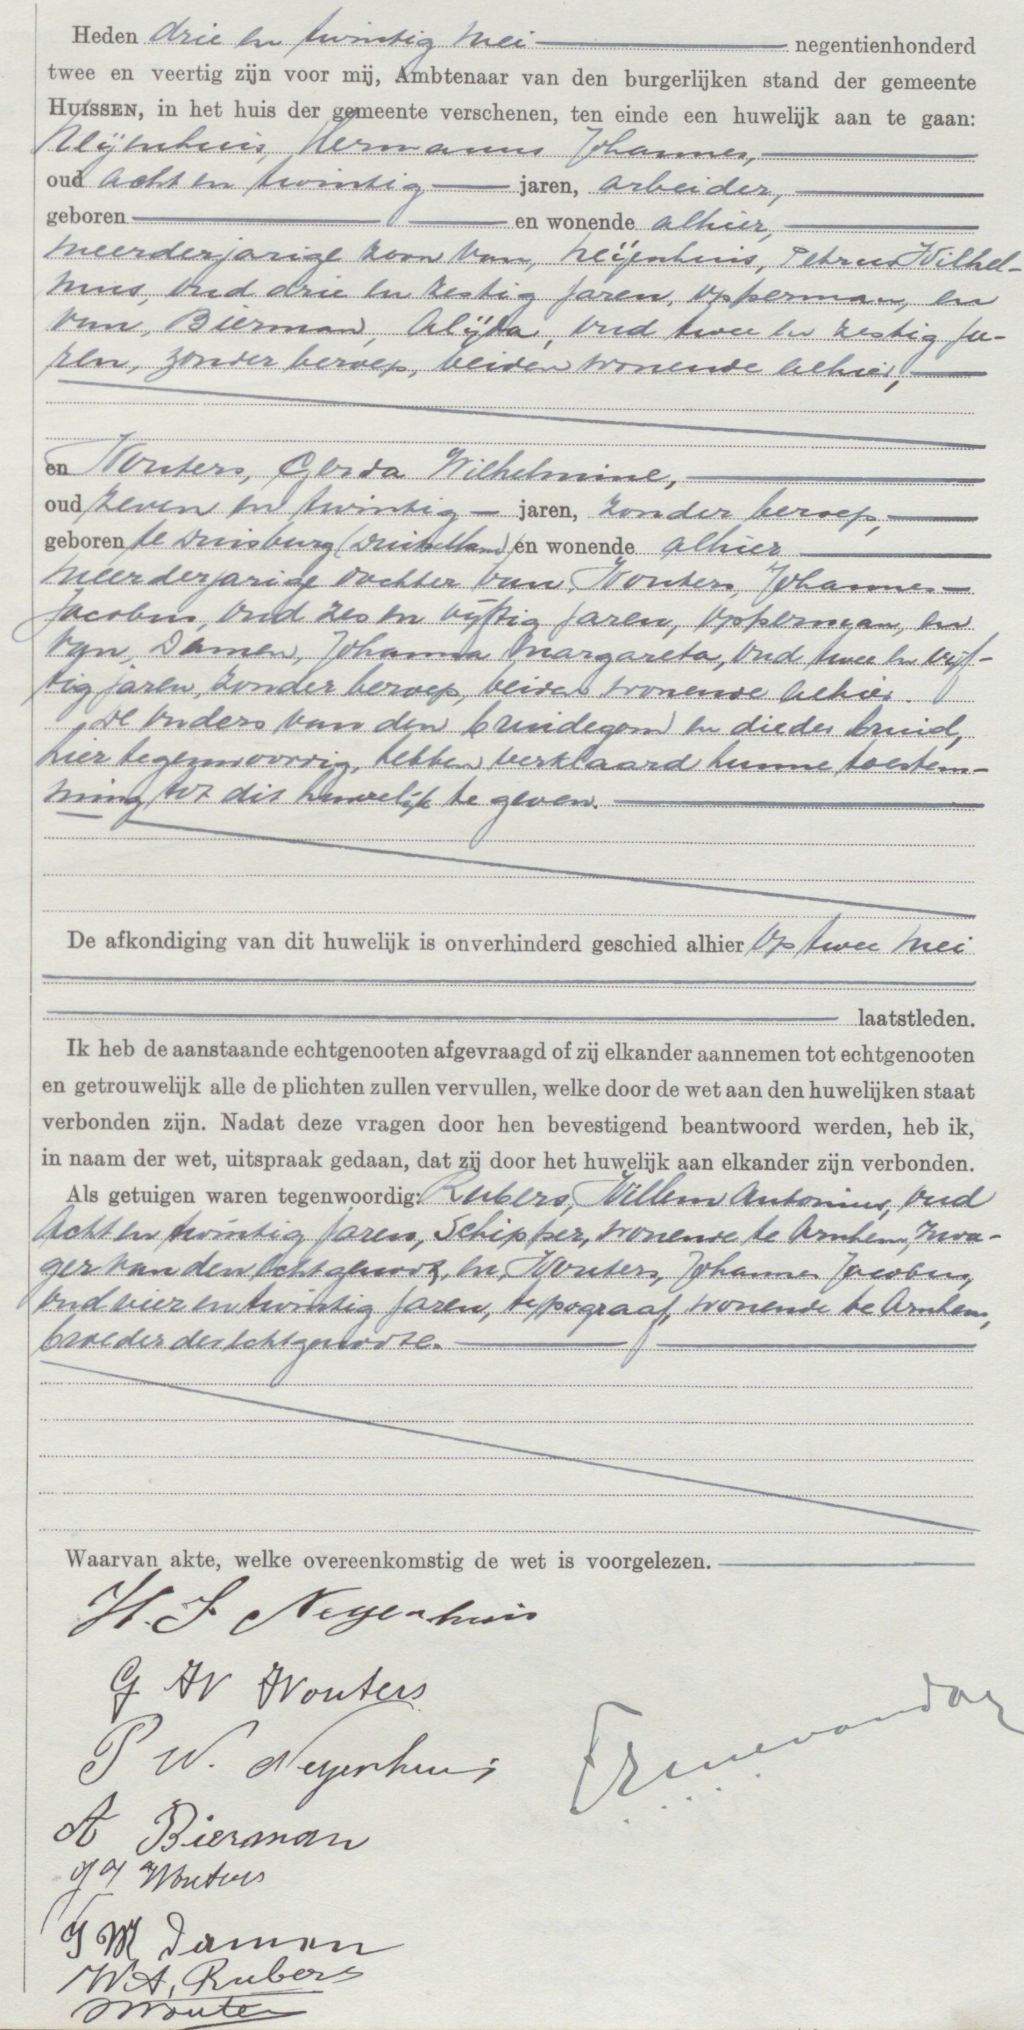 Heden drie en twintig Mei negentienhonderd
twee en veertig zijn voor mij, Ambtenaar van den burgerlijken stand der gemeente
HUISSEN, in het huis der gemeente verschenen, ten einde een huwelijk aan te gaan:
Neijenhuis, Hermanus Johannes,
oud acht en twintig jaren, arbeider,
geboren en wonende alhier,
meerderjarige zoon van, Neijenhuis, Petrus Wilhel-
mus, oud drie en zestig jaren, opperman, en
van, Bierman, Alijda, oud twee en zestig ja-
ren, zonder beroep, beiden wonende alhier,
en Wouters, Gerda Wilhelmine,
oud zeven en twintig jaren, zonder beroep,
geboren te Duisburg (Duitschland) en wonende alhier
meerderjarige dochter van, Wouters, Johannes
Jacobus, oud zes en vijftig jaren, opperman, en
van, Damen, Johanna Margareta, oud twee en vijf-
tig jaren, zonder beroep, beiden wonende alhier.
De ouders van den bruidegom en die der bruid,
hier tegenwoordig, hebben verklaard hunne toestem-
ming tot dit huwelijk te geven.
De afkondiging van dit huwelijk is onverhinderd geschied alhier op twee Mei
laatstleden.
Ik heb de aanstaande echtgenooten afgevraagd of zij elkander aannemen tot echtgenooten
en getrouwelijk alle de plichten zullen vervullen, welke door de wet aan den huwelijken staat
verbonden zijn. Nadat deze vragen door hen bevestigend beantwoord werden, heb ik,
in naam der wet, uitspraak gedaan, dat zij door het huwelijk aan elkander zijn verbonden.
Als getuigen waren tegenwoordig: Rubers, Willem Antonius, oud
acht en twintig jaren, schipper, wonende te Arnhem, zwa-
ger van den echtgenoot, en, Wouters, Johannes Jacobus,
oud vier en twintig jaren, typograaf, wonende te Arnhem,
broeder der echtgenoote.
Waarvan akte, welke overeenkomstig de wet is voorgelezen.
H. J Neyenhuis
G W Wouters
P W. Neyenhuis
A Bierman
J J Wouters
J M Damen
W A, Rubers
Wouters